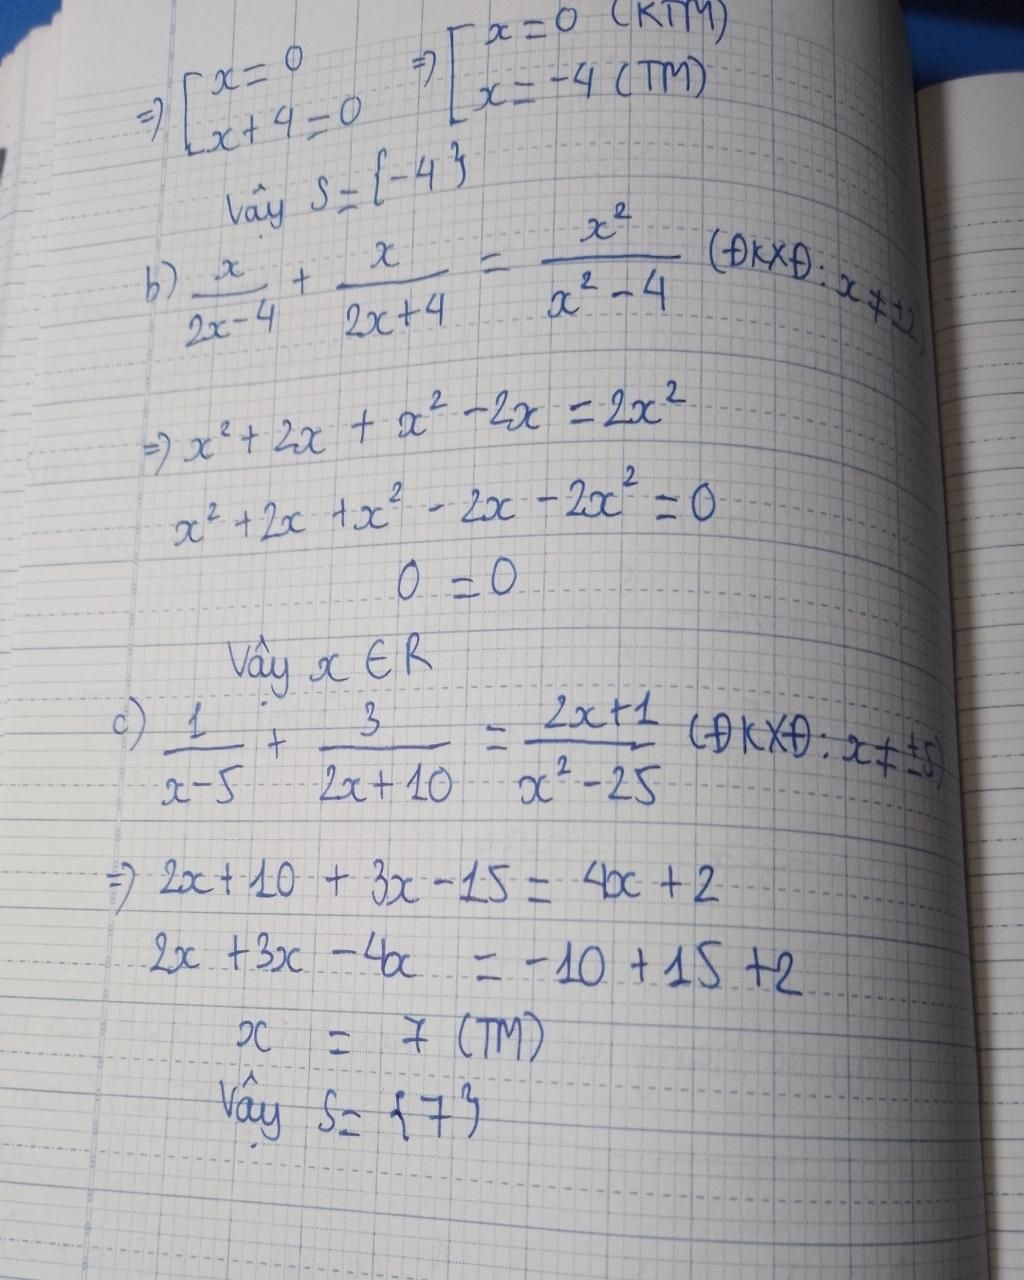 => [ x = 0 => [ x = 0 (KTM)
x + 4 = 0 x = -4 (TM)
Vậy S = {-4}
b) x/(2x-4) + x/(2x+4) = x²/(x²-4) (ĐKXĐ: x ≠ ±2)
=> x² + 2x + x² - 2x = 2x²
x² + 2x + x² - 2x - 2x² = 0
0 = 0
Vậy x ∈ R
c) 1/(x-5) + 3/(2x+10) = (2x+1)/(x²-25) (ĐKXĐ: x ≠ ±5)
=> 2x + 10 + 3x - 15 = 4x + 2
2x + 3x - 4x = -10 + 15 + 2
x = 7 (TM)
Vậy S = {7}